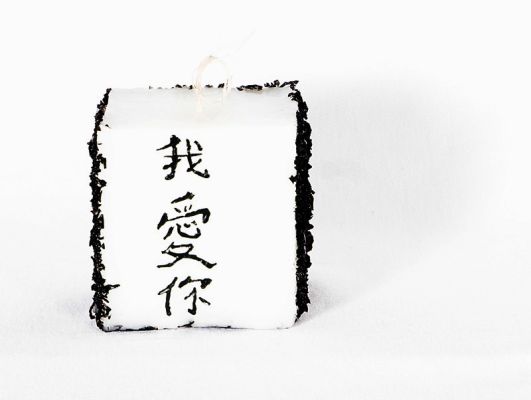 我愛你